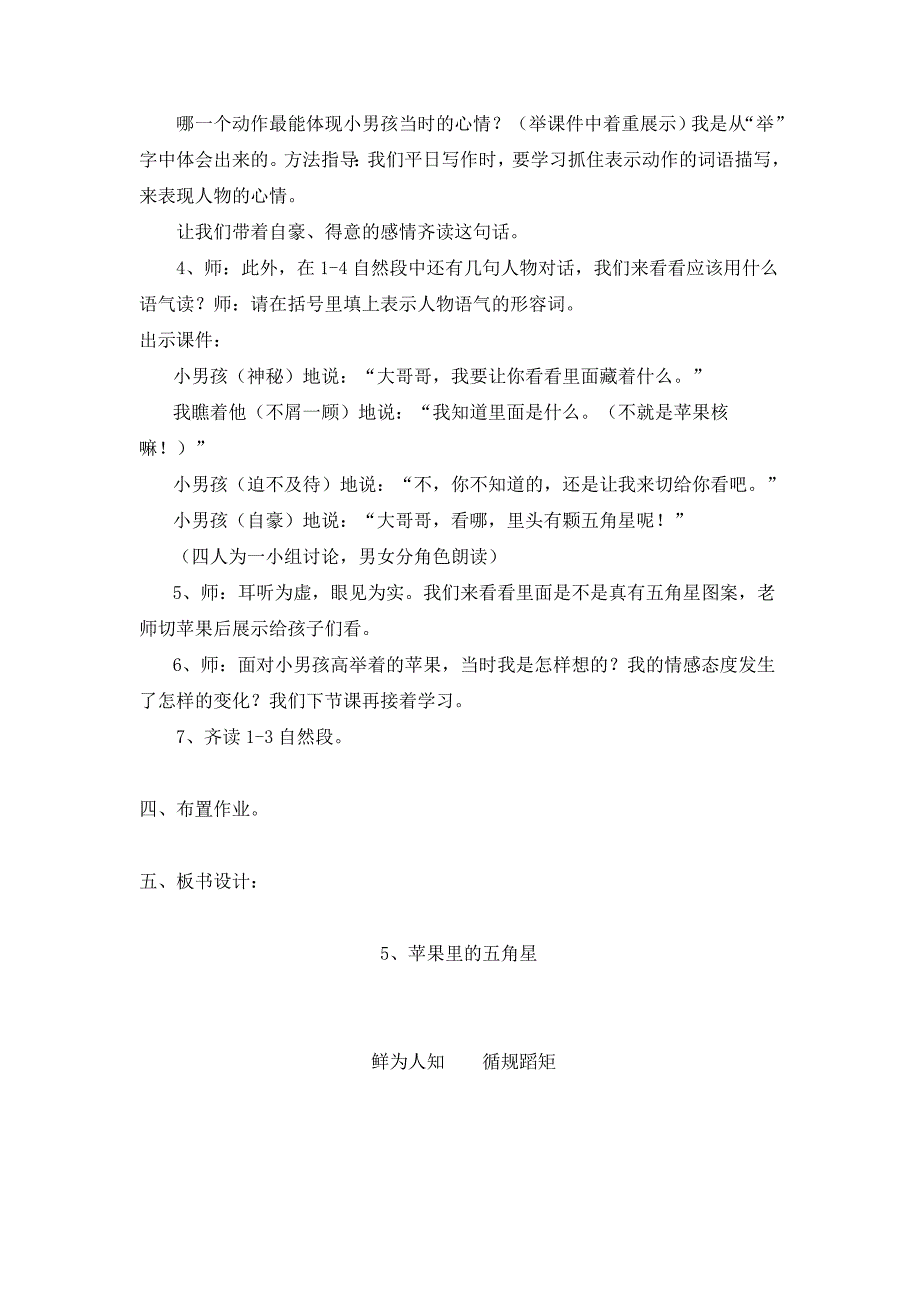 哪一个动作最能体现小男孩当时的心情？（举课件中着重展示）我是从“举”
字中体会出来的。方法指导：我们平日写作时，要学习抓住表示动作的词语描写，
来表现人物的心情。
让我们带着自豪、得意的感情齐读这句话。
4、师：此外，在1-4自然段中还有几句人物对话，我们来看看应该用什么
语气读？师：请在括号里填上表示人物语气的形容词。
出示课件：
小男孩（神秘）地说：“大哥哥，我要让你看看里面藏着什么。”
我瞧着他（不屑一顾）地说：“我知道里面是什么。（不就是苹果核
嘛！）”
小男孩（迫不及待）地说：“不，你不知道的，还是让我来切给你看吧。”
小男孩（自豪）地说：“大哥哥，看哪，里头有颗五角星呢！”
（四人为一小组讨论，男女分角色朗读）
5、师：耳听为虚，眼见为实。我们来看看里面是不是真有五角星图案，老
师切苹果后展示给孩子们看。
6、师：面对小男孩高举着的苹果，当时我是怎样想的？我的情感态度发生
了怎样的变化？我们下节课再接着学习。
7、齐读1-3自然段。
四、布置作业。
五、板书设计：
5、苹果里的五角星
鲜为人知 循规蹈矩